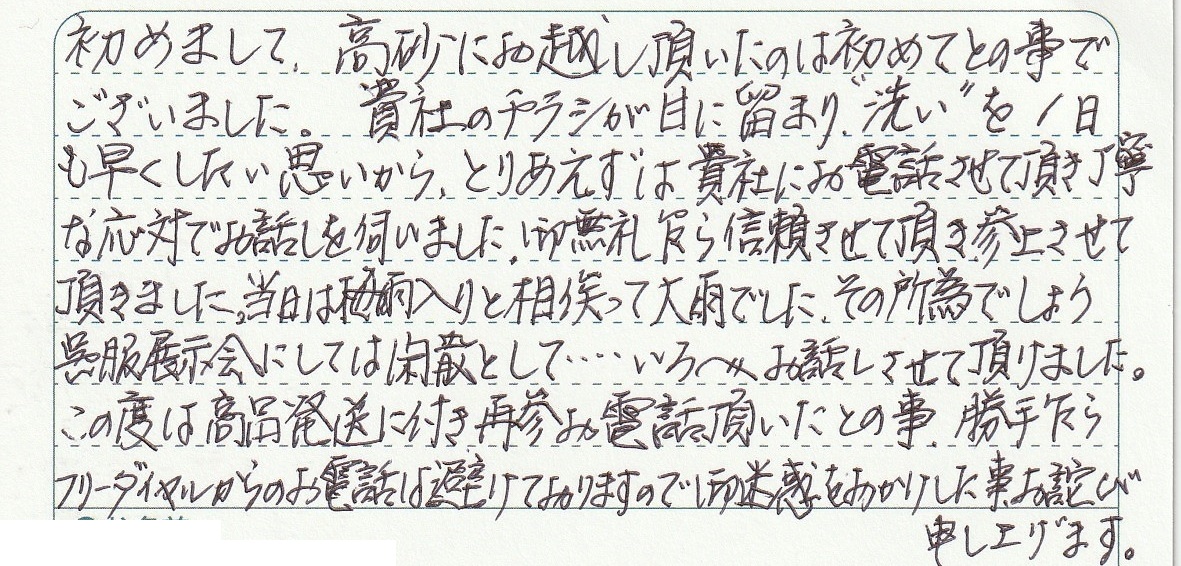 初めまして、高砂にお越し頂いたのは初めてとの事で
ございました。 貴社のチラシが目に留まり、"洗い"を1日
も早くしたい思いから、とりあえずは貴社にお電話させて頂き丁寧
な応対でお話しを伺いました、御無礼乍ら信頼させて頂き参上させて
頂きました。当日は梅雨入りと相俟って大雨でした、その所為でしょう
呉服展示会にしては閑散として‥‥いろ〱お話しさせて頂けました。
この度は商品発送に付き再参お電話頂いたとの事、勝手乍ら
フリーダイヤルからのお電話は避けておりますので御迷惑をおかけした事お詫び
申し上げます。